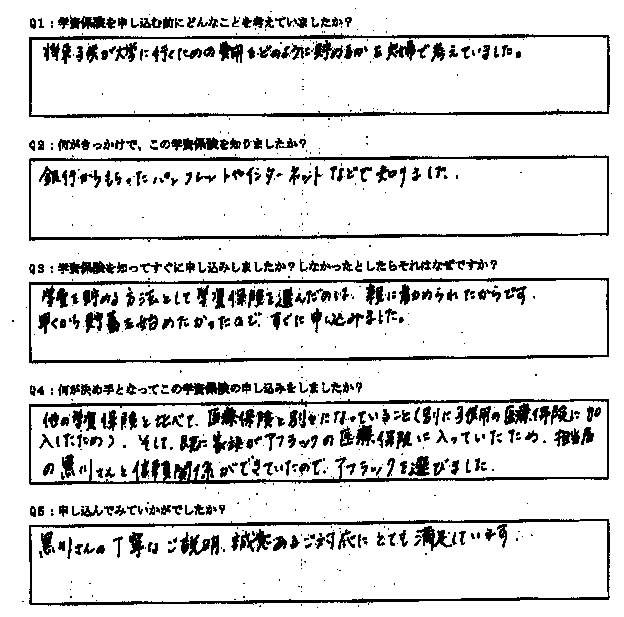 Q1：学資保険を申し込む前にどんなことを考えていましたか？
将来子供が大学に行くための費用をどのように貯めるかを夫婦で考えていました。
Q2：何がきっかけで、この学資保険を知りましたか？
銀行からもらったパンフレットやインターネットなどで知りました。
Q3：学資保険を知ってすぐに申し込みしましたか？しなかったとしたらそれはなぜですか？
学費を貯める方法として学資保険を選んだのは、親に勧められたからです。
早くから貯蓄を始めたかったので、すぐに申し込みました。
Q4：何が決め手となってこの学資保険の申し込みをしましたか？
他の学資保険と比べて、医療保険と別々になっていること（別に子供用の医療保険に加
入したため）。そして、既に家族がアフラックの医療保険に入っていたため、担当者
の黒川さんと信頼関係ができていたので、アフラックを選びました。
Q5：申し込んでみていかがでしたか？
黒川さんの丁寧なご説明、誠意あるご対応にとても満足しています。